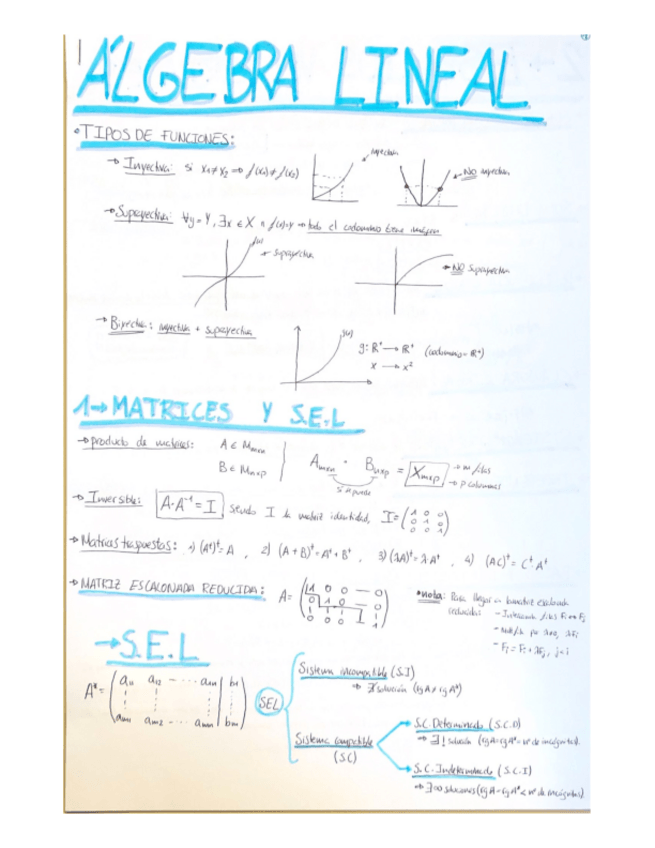 ÁLGEBRA LINEAL
•TIPOS DE FUNCIONES:
→ Inyectiva: si x₁≠x₂ ⇒ f(x₁)≠f(x₂)
inyectiva
NO inyectiva
→Suprayectiva: ∀y=Y, ∃x∈X n f(x)=y → todo el codominio tiene imagen
f(x)
suprayectiva
NO suprayectiva
→ Biyectiva: inyectiva + suprayectiva
f(x)
g: ℝ⁺ → ℝ⁺ (codominio= ℝ⁺)
x → x²
1→MATRICES Y S.E.L
→producto de matrices: A ∈ Mmxn
B ∈ Mnxp
Amxn · Bnxp = Xmxp → m filas
→ p columnas
si se puede
→ Inversible: A·A⁻¹ = I, siendo I la matriz identidad, I=(1 0 0
0 1 0
0 0 1)
→Matrices traspuestas: 1) (Aᵗ)ᵗ=A , 2) (A+B)ᵗ=Aᵗ+Bᵗ , 3) (λA)ᵗ=λ·Aᵗ , 4) (AC)ᵗ=Cᵗ·Aᵗ
→ MATRIZ ESCALONADA REDUCIDA: A=
•nota: Para llegar a la matriz escalonada
reducida: - Intercamb. filas Fi↔Fj
- Fi = Fi+λFj, j≠i
→S.E.L
A*= (a11 a12 --- a1n | b1
am1 am2 --- amn | bm)
SEL
Sistema incompatible (S.I)
→ ∄ solución (rgA≠rgA*)
Sistema compatible
(S.C)
→ S.C. Determinado (S.C.D)
→ ∃! solución (rgA=rgA*=nº de incógnitas).
→ S.C. Indeterminado (S.C.I)
→ ∃∞ soluciones (rgA=rgA*<nº de incógnitas)